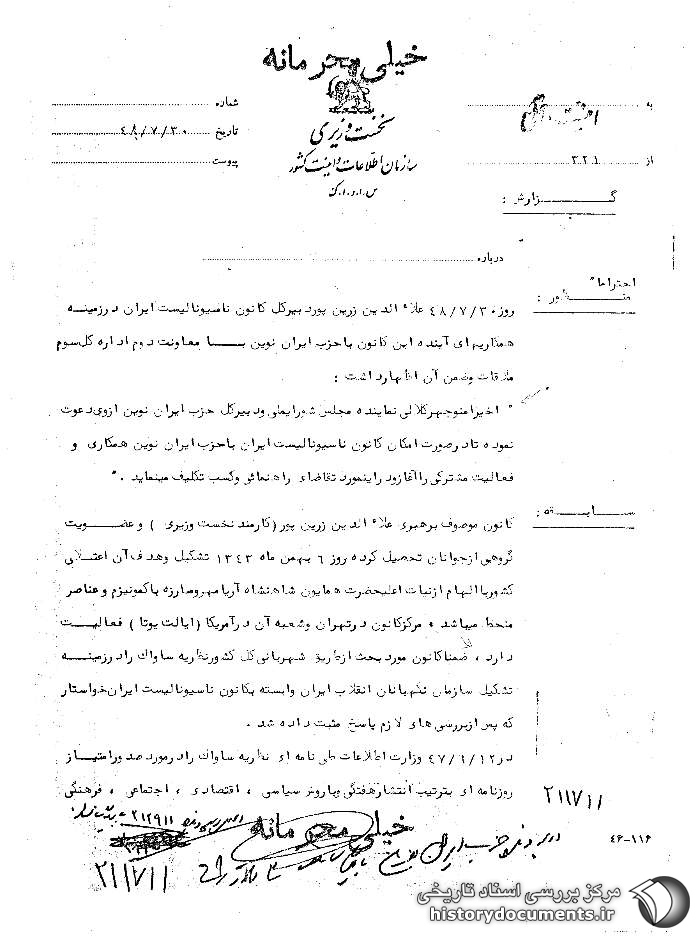 خیلی محرمانه
نخست وزیری
سازمان اطلاعات و امنیت کشور
س.ا.و.ا.ک
به
از ۳۲۱
شماره
تاریخ ۴۸/۷/۳۰
پیوست
گزارش :
درباره
احتراما"
منظور :
روز ۴۸/۷/۳۰ علاء الدین زرین پور دبیرکل کانون ناسیونالیست ایران در زمینه
همکاریهای آینده این کانون با حزب ایران نوین با معاونت دوم اداره کل سوم
ملاقات و ضمن آن اظهار داشت :
" اخیرا منوچهر کلالی نماینده مجلس شورایملی و دبیرکل حزب ایران نوین از وی دعوت
نموده تا در صورت امکان کانون ناسیونالیست ایران با حزب ایران نوین همکاری و
فعالیت مشترکی را آغاز و در اینمورد تقاضای راهنمائی و کسب تکلیف مینماید . "
سابقه :
کانون موصوف برهبری علاء الدین زرین پور (کارمند نخست وزیری ) و عضویت
گروهی از جوانان تحصیل کرده روز ۶ بهمن ماه ۱۳۴۳ تشکیل و هدف آن اعتلای
کشور با الهام از نیات اعلیحضرت همایون شاهنشاه آریامهر و مبارزه با کمونیزم و عناصر
منحط میباشد . مرکز کانون در تهران و شعبه آن در آمریکا (ایالت یوتا ) فعالیت
دارد ، ضمنا کانون مورد بحث از طریق شهربانی کل کشور نظریه ساواک را در زمینه
تشکیل سازمان نگهبانان انقلاب ایران وابسته بکانون ناسیونالیست ایران خواستار
که پس از بررسی های لازم پاسخ مثبت داده شد .
در ۴۷/۶/۱۲ وزارت اطلاعات طی نامه ای نظریه ساواک را در مورد صدور امتیاز
روزنامه ای بترتیب انتشار هفتگی و با روش سیاسی ، اقتصادی ، اجتماعی ، فرهنگی
۲۱۱۷۱۱
خیلی محرمانه
۴۶-۱۱۶
۲۱۱۷۱۱
مرکز بررسی اسناد تاریخی
historydocuments.ir